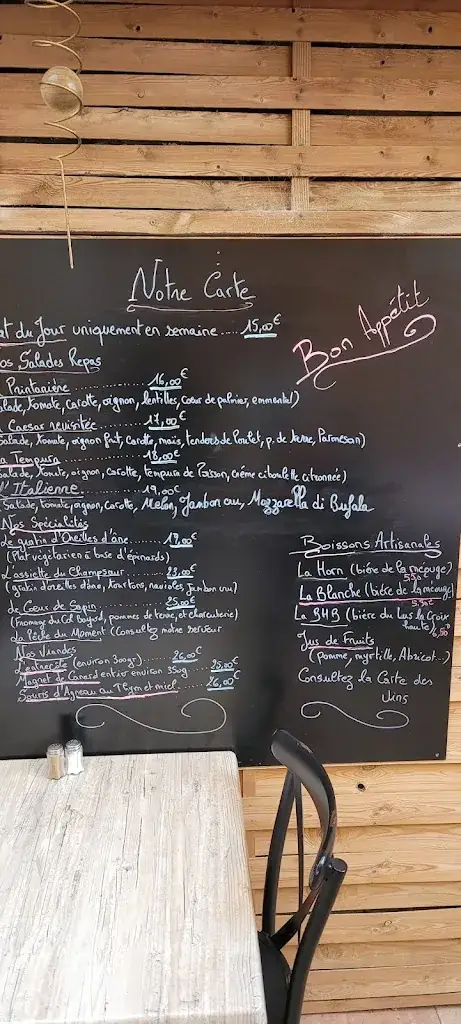 Notre Carte
at du Jour uniquement en semaine .... 15,00€
os Salades Repas
Printanière ........... 16,00€
alade, tomate, carotte, oignon, lentilles, cœur de palmier, emmental)
Caesar revisitée ........ 17,00€
Salade, tomate, oignon frit, carotte, maïs, tenders de Poulet, p. de terre, Parmesan)
a Tempura ........... 18,00€
Salade, tomate, oignon, carotte, tempura de Poisson, crème ciboulette citronnée)
L'Italienne .......... 19,00€
Salade, tomate, oignon, carotte, Melon, Jambon cru, Mozzarella di Bufala
Nos Spécialités
de gratin d'Oreilles d'âne ........ 19,00€
(Plat végétarien à base d'épinards)
L'assiette du Champsaur ..... 23,00€
(gratin d'oreilles d'âne, tourtons, ravioles, Jambon cru)
de Cœur de Sapin ........ 25,00€
(Fromage du Col Bayard, pommes de terre, et charcuterie)
La Pêche du Moment (Consultez notre serveur
Nos Viandes
L'entrecôte (environ 300gr) ....... 26,00€
Magret de Canard entier environ 350g ..... 25,00€
Souris d'Agneau au Thym et miel ..... 26,00€
Bon Appétit
Boissons Artisanales
La Horn (bière de la meauge)
5,50€
La Blanche (bière de la meauge)
5,50€
La BHB (bière du Lus la Croix
haute) 6,50€
Jus de Fruits
(Pomme, myrtille, Abricot...)
Consultez la Carte des
Vins